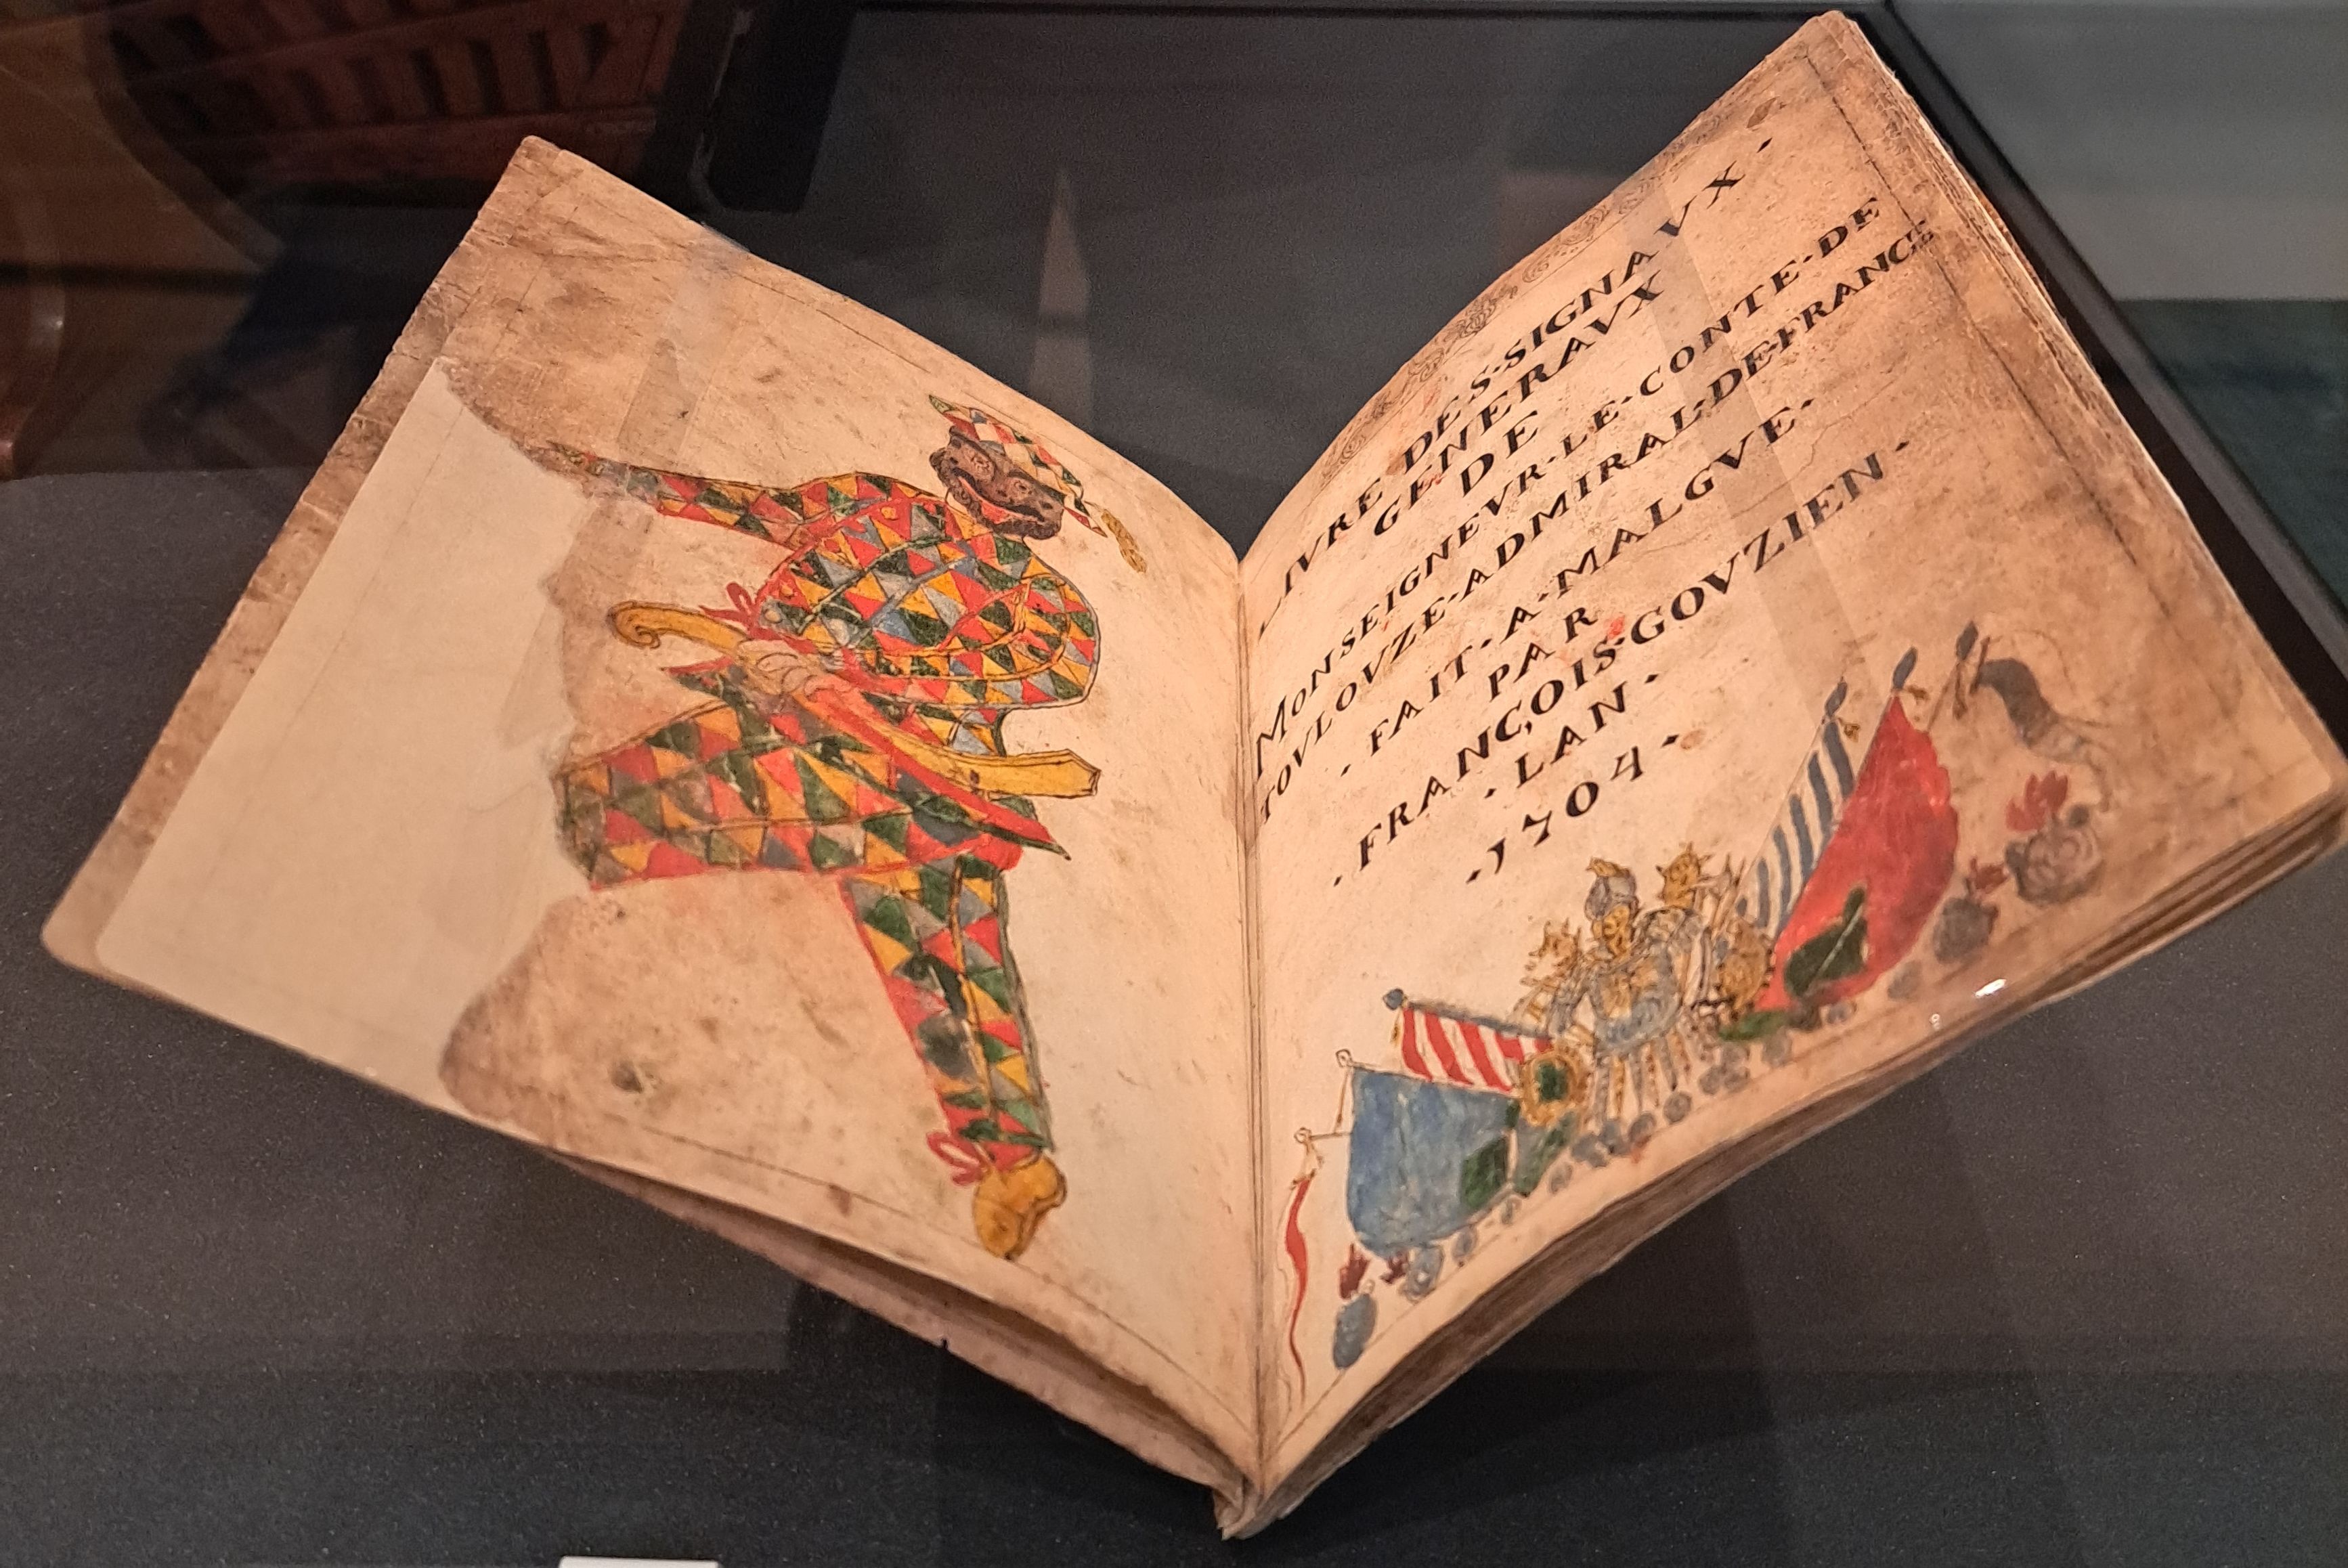 LIVRE DES·SIGNAVX·
GENERAVX
DE
MONSEIGNEVR·LE·CONTE·DE
TOVLOVZE·ADMIRAL·DE·FRANCE
·FAIT·A·MALGVE·
PAR
·FRANÇOIS·GOVZIEN·
·LAN·
·1704·